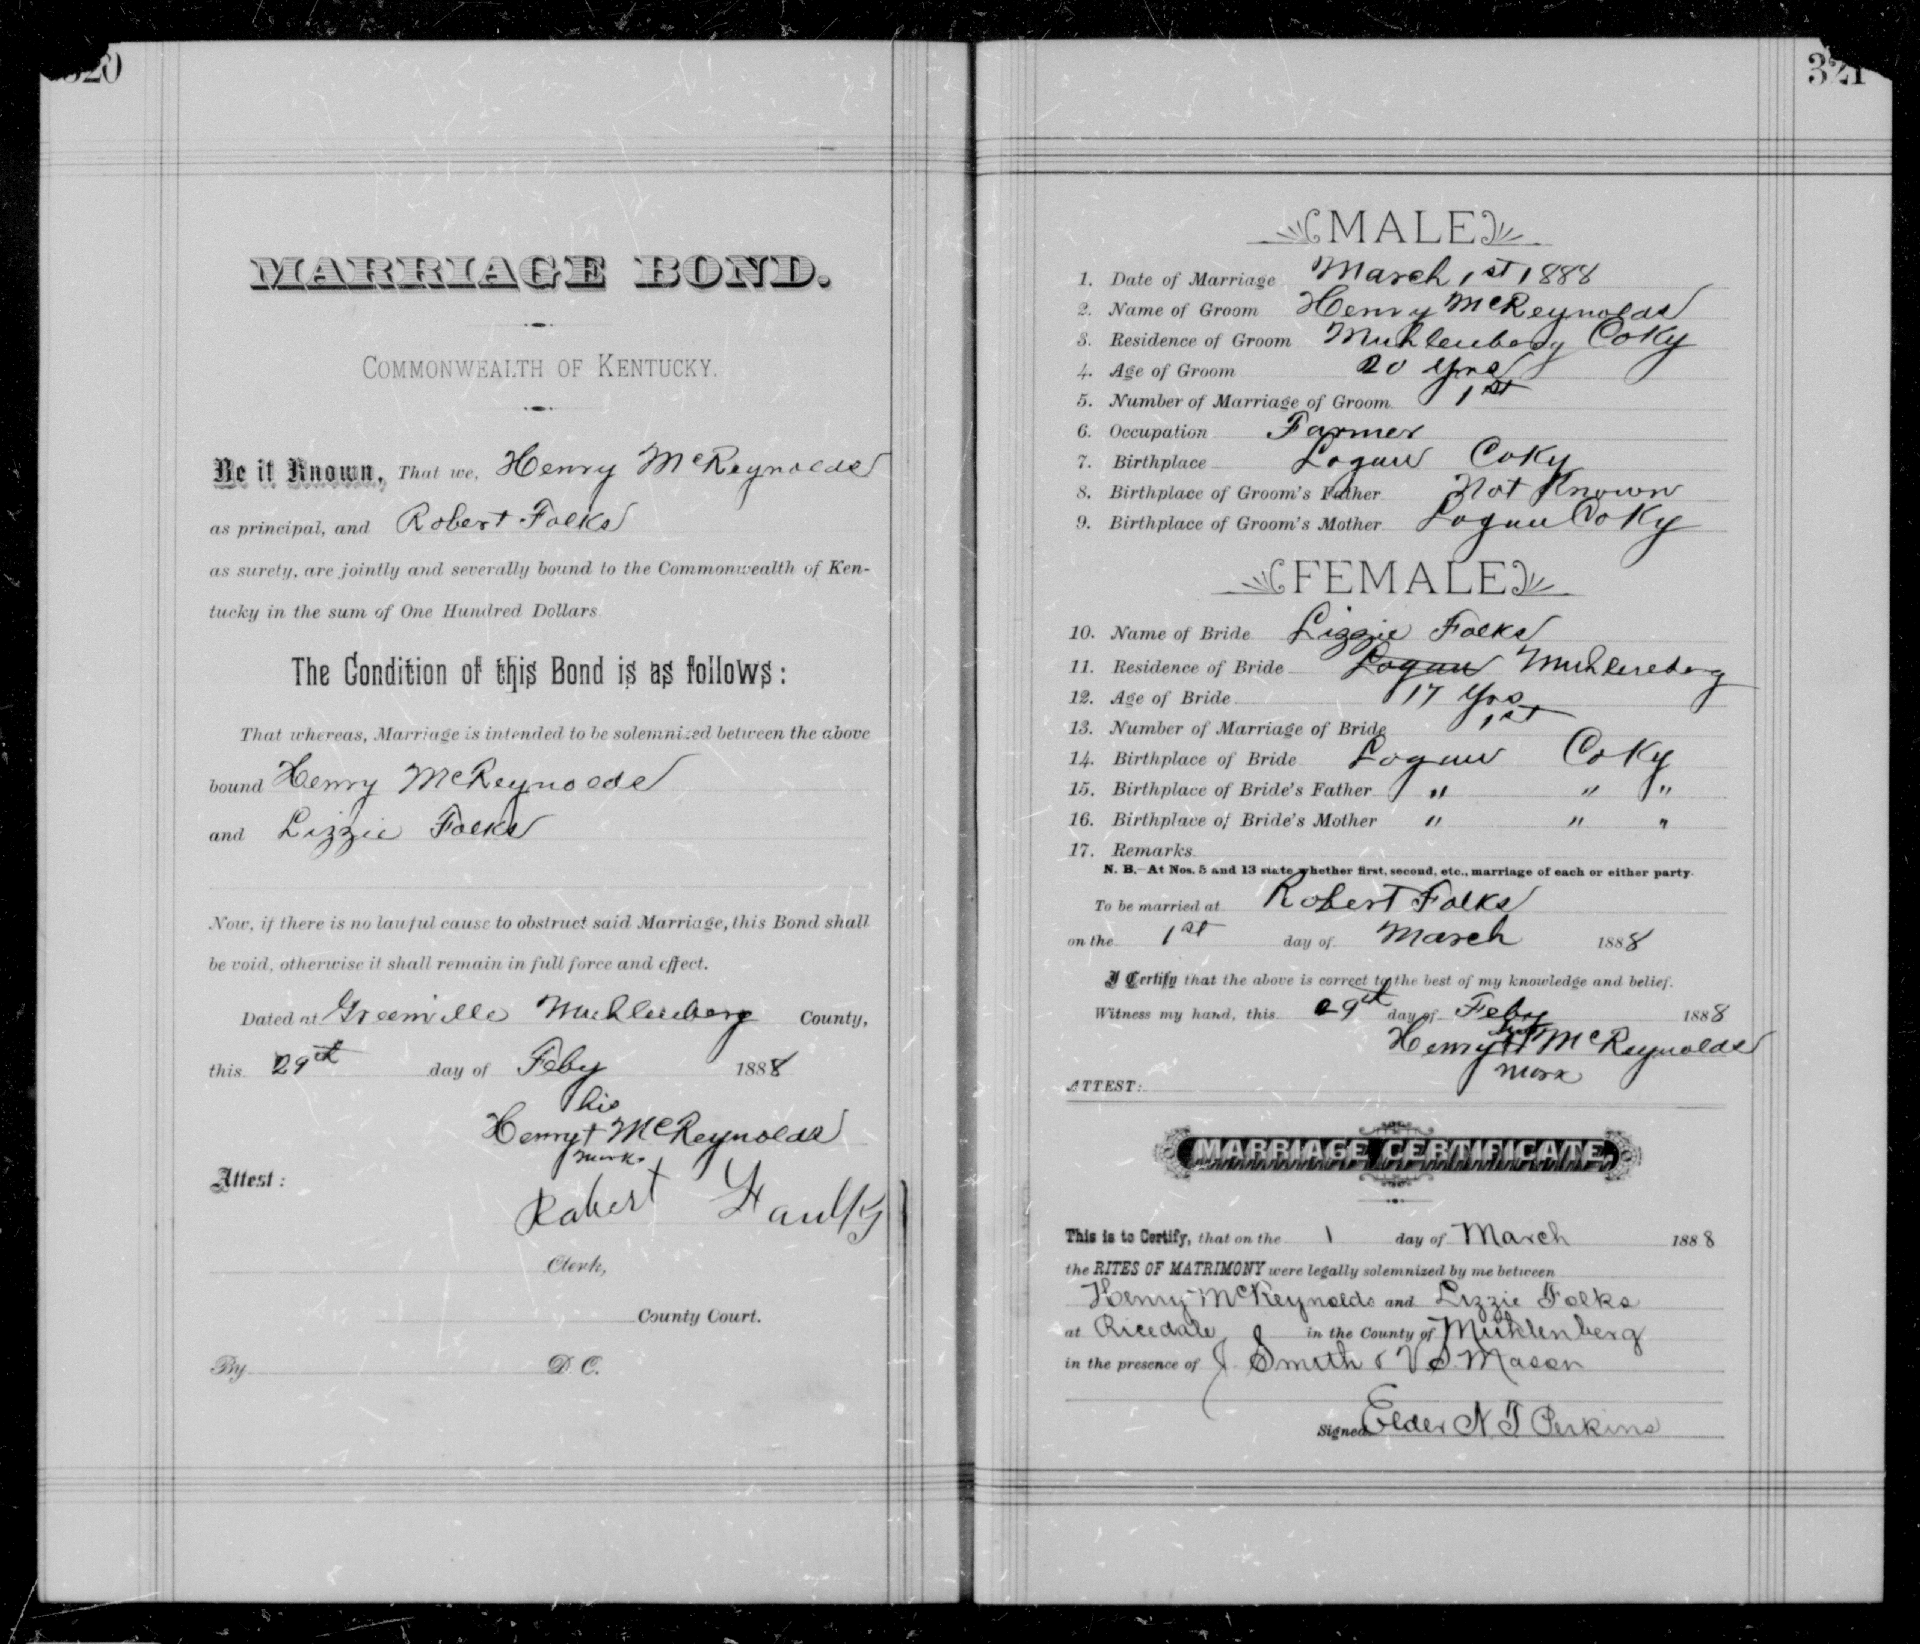 320
MARRIAGE BOND.
COMMONWEALTH OF KENTUCKY.
Be it Known, That we, Henry McReynolds
as principal, and Robert Folks
as surety, are jointly and severally bound to the Commonwealth of Ken-
tucky in the sum of One Hundred Dollars
The Condition of this Bond is as follows:
That whereas, Marriage is intended to be solemnized between the above
bound Henry McReynolds
and Lizzie Folks
Now, if there is no lawful cause to obstruct said Marriage, this Bond shall
be void, otherwise it shall remain in full force and effect.
Dated at Greenville Muhlenberg County,
this 29th day of Feby 1888
his
Henry + McReynolds
mark
Attest:
Robert Faulks
Clerk,
County Court.
By D. C.
321
MALE
1. Date of Marriage March 1st 1888
2. Name of Groom Henry McReynolds
3. Residence of Groom Muhlenberg Co Ky
4. Age of Groom 20 Yrs
5. Number of Marriage of Groom 1st
6. Occupation Farmer
7. Birthplace Logan Co Ky
8. Birthplace of Groom's Father Not Known
9. Birthplace of Groom's Mother Logan Co Ky
FEMALE
10. Name of Bride Lizzie Folks
11. Residence of Bride Logan Muhlenberg
12. Age of Bride 17 Yrs
13. Number of Marriage of Bride 1st
14. Birthplace of Bride Logan Co Ky
15. Birthplace of Bride's Father " " "
16. Birthplace of Bride's Mother " " "
17. Remarks
N. B.—At Nos. 5 and 13 state whether first, second, etc., marriage of each or either party.
To be married at Robert Folks
on the 1st day of March 1888
I Certify that the above is correct to the best of my knowledge and belief.
Witness my hand, this 29th day of Feby 1888
his
Henry + McReynolds
mark
ATTEST:
MARRIAGE CERTIFICATE.
This is to Certify, that on the 1 day of March 1888
the RITES OF MATRIMONY were legally solemnized by me between
Henry McReynolds and Lizzie Folks
at Ricedale in the County of Muhlenberg
in the presence of J. Smith & V S Mason
Signed Elder N T Perkins